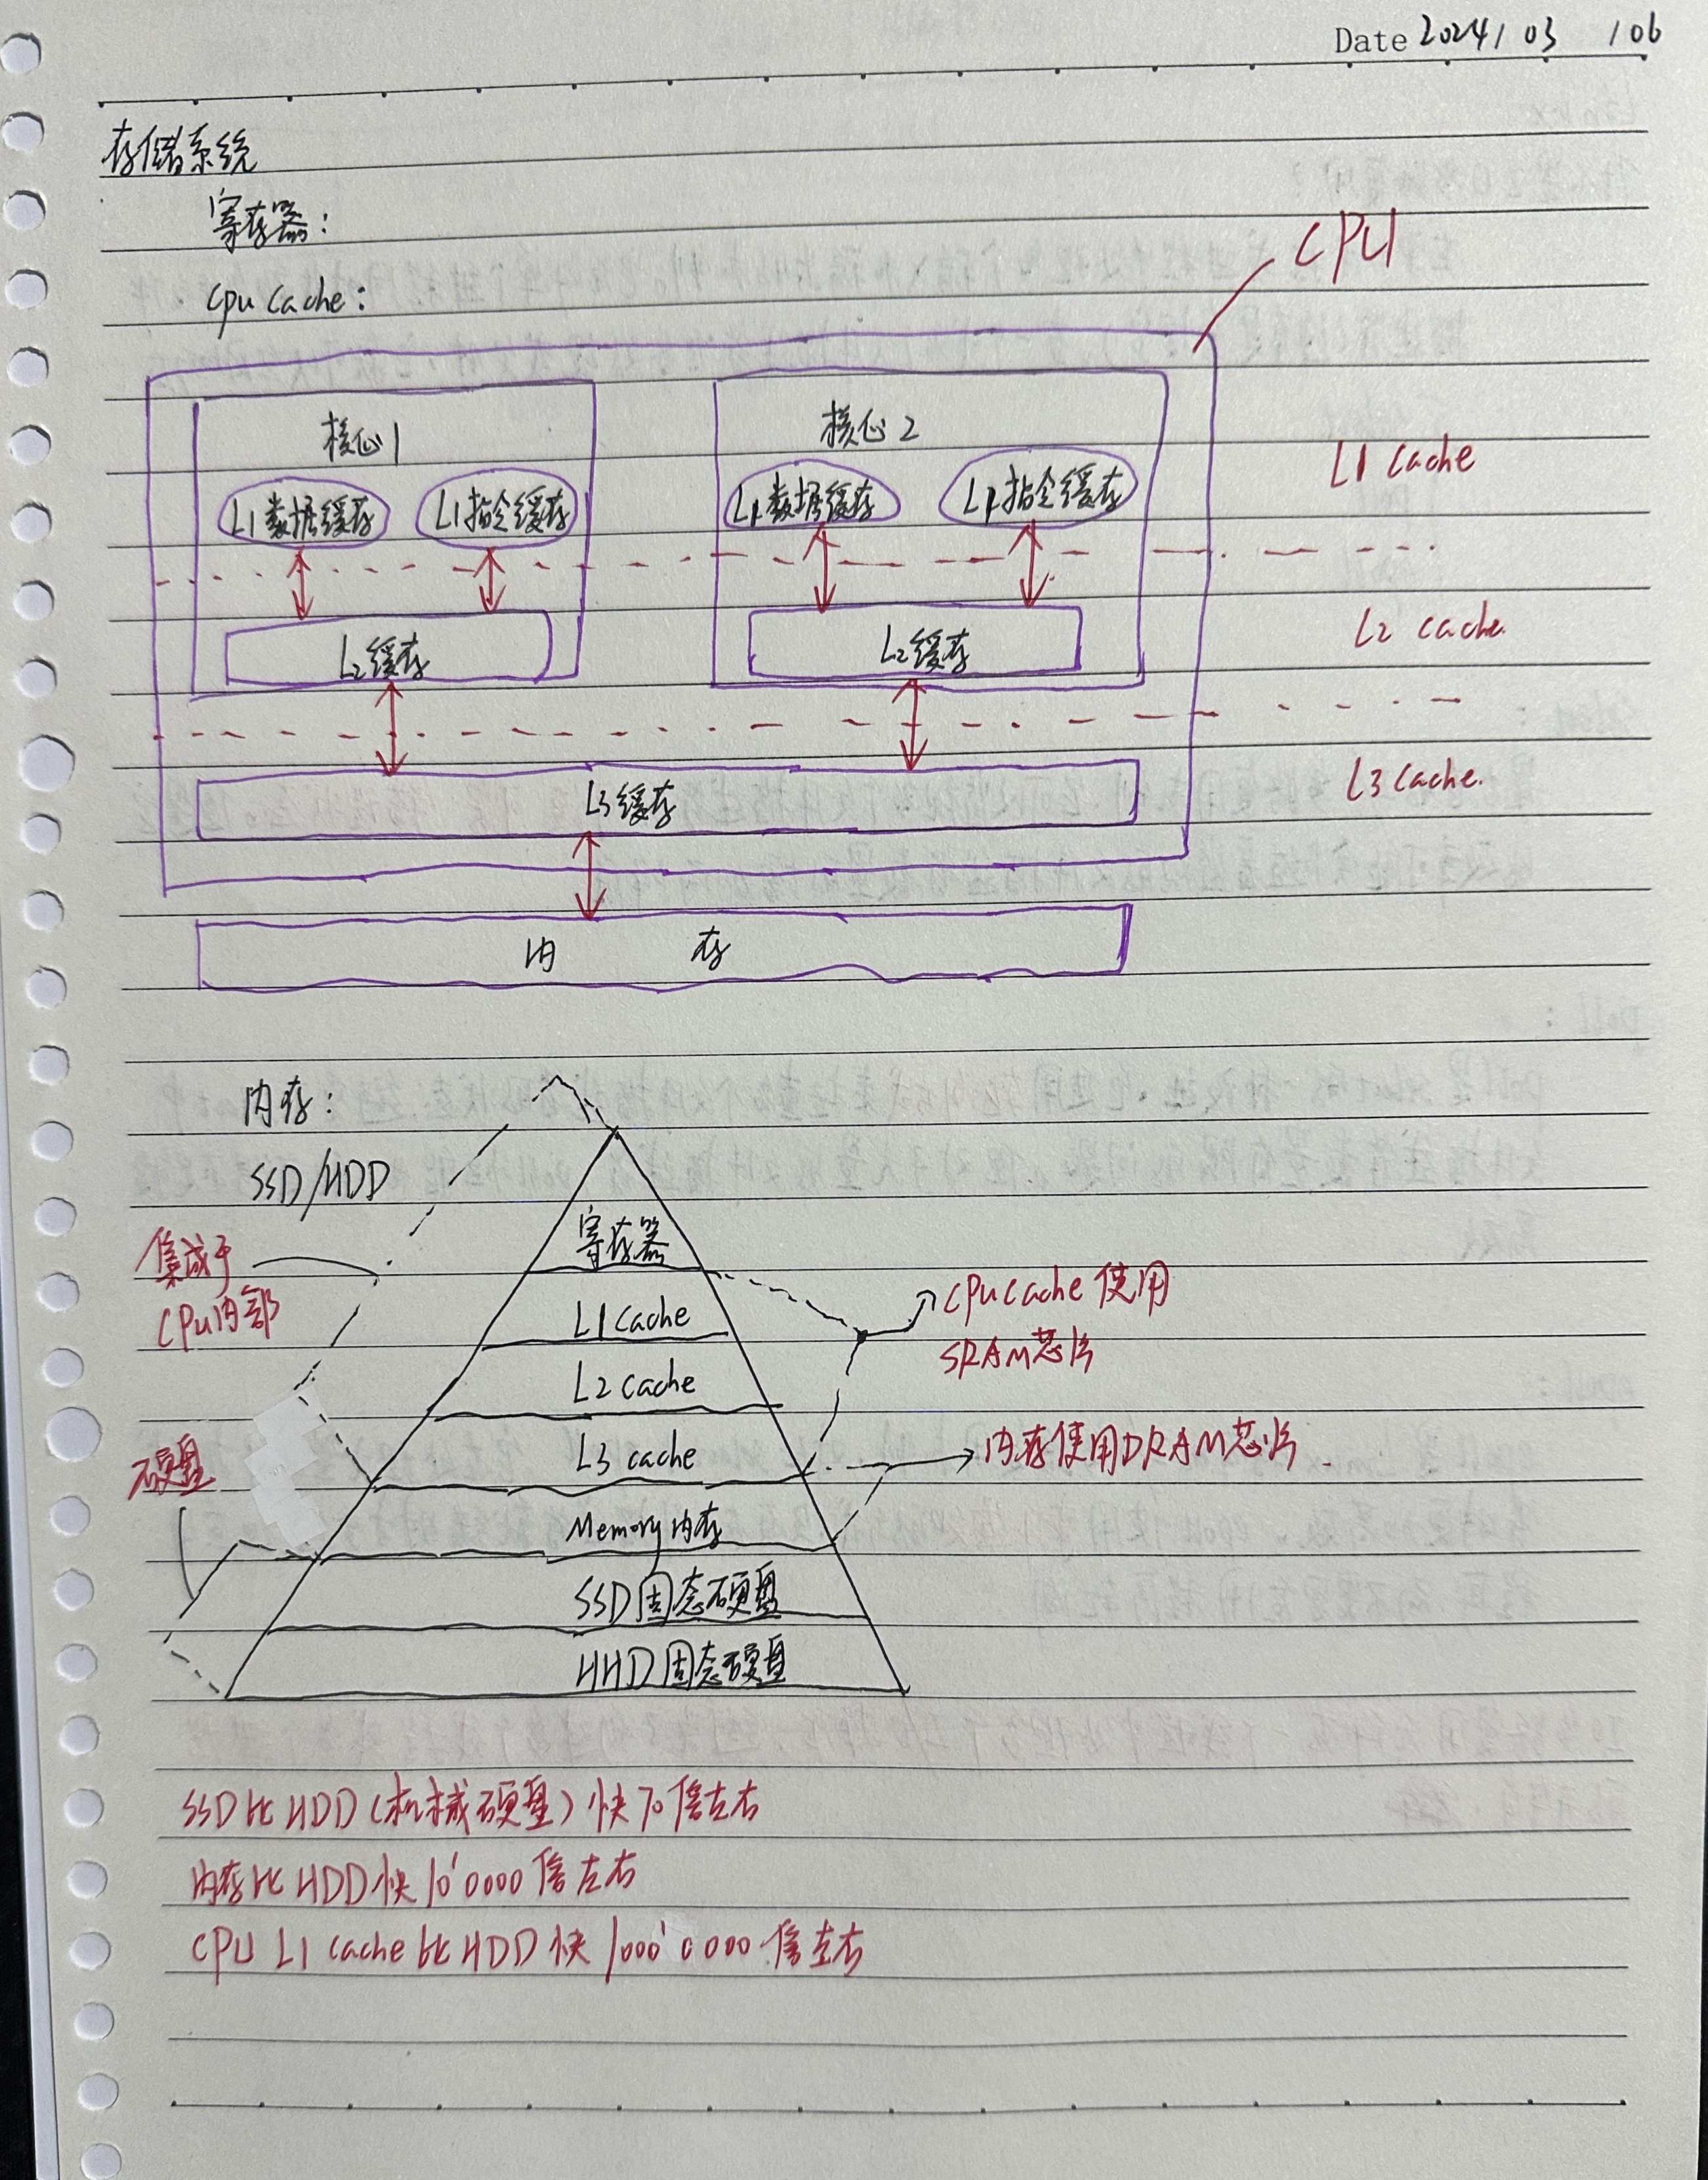 Date 2024/03/06
存储系统
寄存器：
CPU Cache：
CPU
核心1
核心2
L1数据缓存
L1指令缓存
L1数据缓存
L1指令缓存
L1 Cache
L2缓存
L2缓存
L2 cache.
L3缓存
L3 cache.
内存
内存：
SSD/HDD
集成于
CPU内部
硬盘
寄存器
L1 Cache
L2 cache
L3 cache
Memory内存
SSD固态硬盘
HHD固态硬盘
CPU Cache使用
SRAM芯片
内存使用DRAM芯片.
SSD比HDD(机械硬盘)快70倍左右
内存比HDD快10'0000倍左右
CPU L1 cache比HDD快1000'0000倍左右